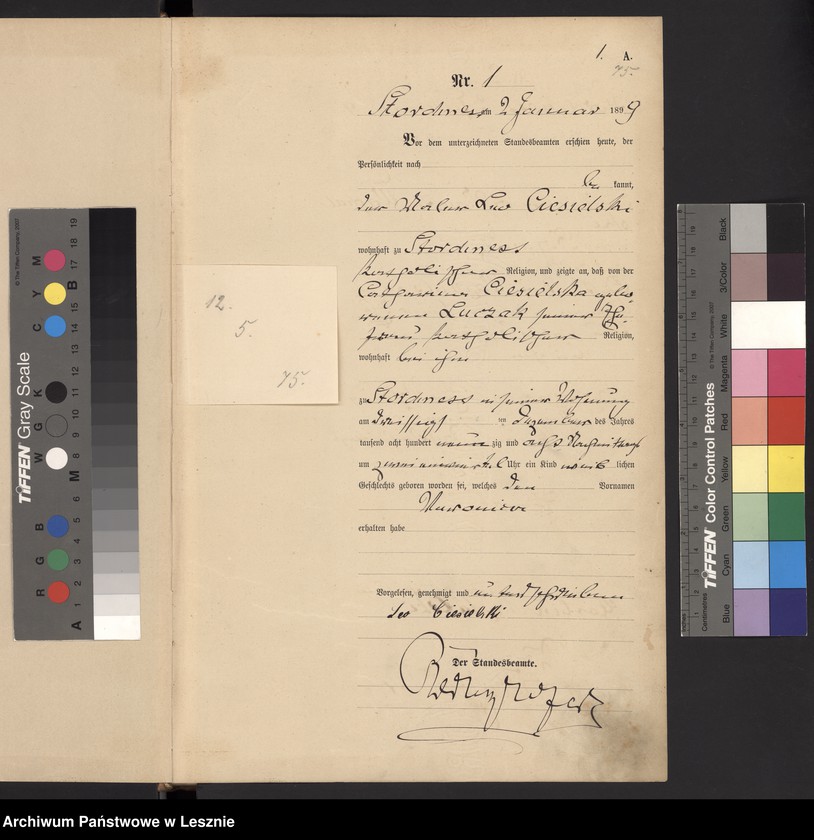 1. A.
75.
Nr. 1
Stordnest am 2 Januar 1899
Vor dem unterzeichneten Standesbeamten erschien heute, der
Persönlichkeit nach
be kannt,
der Maler Leo Ciesielski
wohnhaft zu Stordnest
katholischer Religion, und zeigte an, daß von der
Ciesielska gebo-
renen Luczak seiner Ehe-
frau katholischer Religion,
wohnhaft bei ihm
zu Stordnest in seiner Wohnung
am dreissigsten Dezember des Jahres
tausend acht hundert neunzig und acht Nachmittags
um Uhr ein Kind weib lichen
Geschlechts geboren worden sei, welches den Vornamen
erhalten habe
Vorgelesen, genehmigt und unterschrieben
Leo Ciesielski
Der Standesbeamte.
12.
5.
75.
TIFFEN Gray Scale
© The Tiffen Company, 2007
R G B W G K C Y M
A 1 2 3 4 5 6 M 8 9 10 11 12 13 14 15 B 17 18 19
TIFFEN Color Control Patches
© The Tiffen Company, 2007
Centimetres
Blue Cyan Green Yellow Red Magenta White 3/Color Black
Archiwum Państwowe w Lesznie